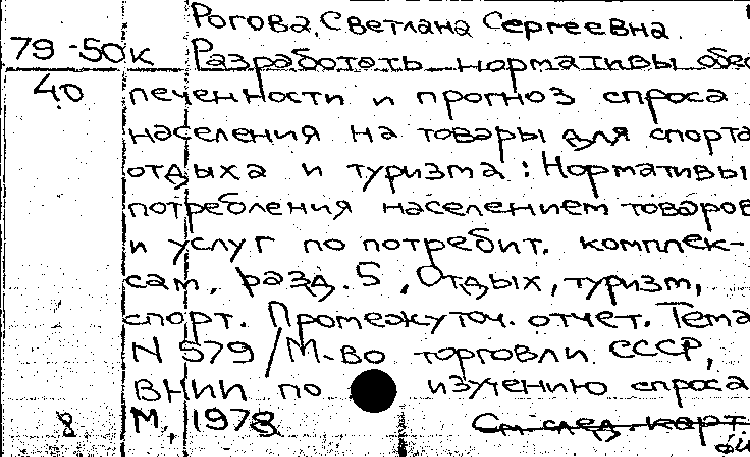 Рогова, Светлана Сергеевна.
79-50к Разработать нормативы обес
40 печенности и прогноз спроса
населения на товары для спорта
отдыха и туризма: Нормативы
потребления населением товаров
и услуг по потребит. комплек-
сам, разд. 5, Отдых, туризм,
спорт. Промежуточ. отчет. Тема
N 579/М-во торговли СССР,
ВНИИ по изучению спроса
8 М., 1978 См. след. карт